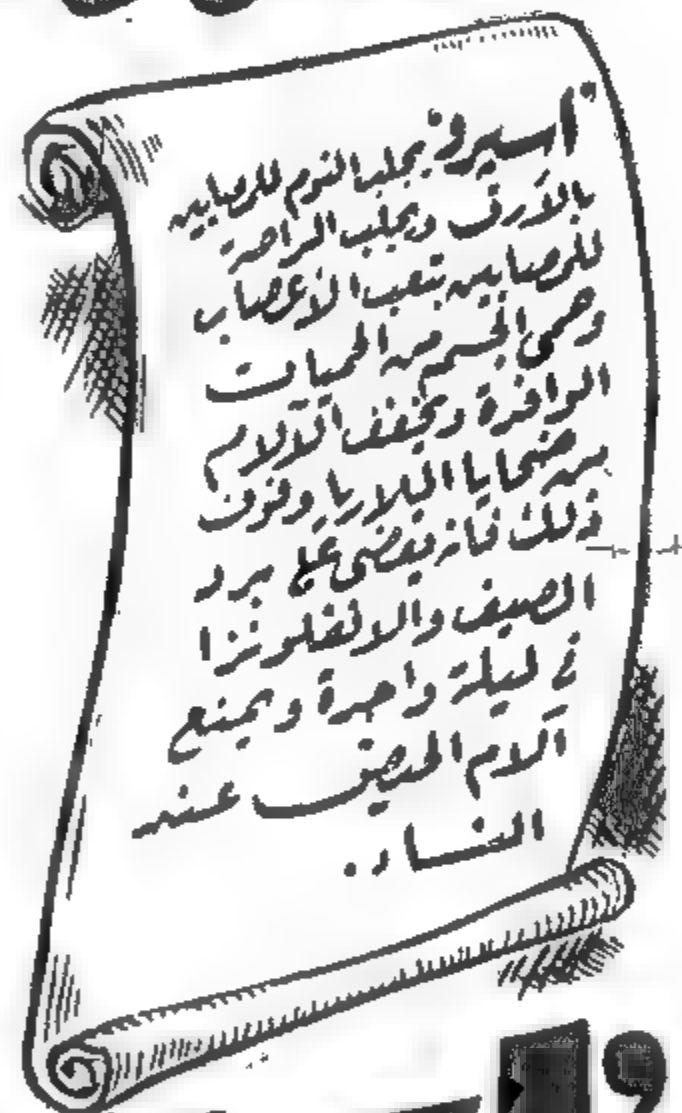 "اسبرو" يجلب النوم للمصابين
بالأرق ويجلب الراحة
للمصابين بتعب الأعصاب
وحمى الجسم من الحميات
الوافدة ويخفف الآلام
من ضحايا الملاريا وفوق
ذلك فانه يقضى على برد
الصيف والانفلونزا
في ليلة واحدة ويمنع
آلام الحيض عند
النساء.